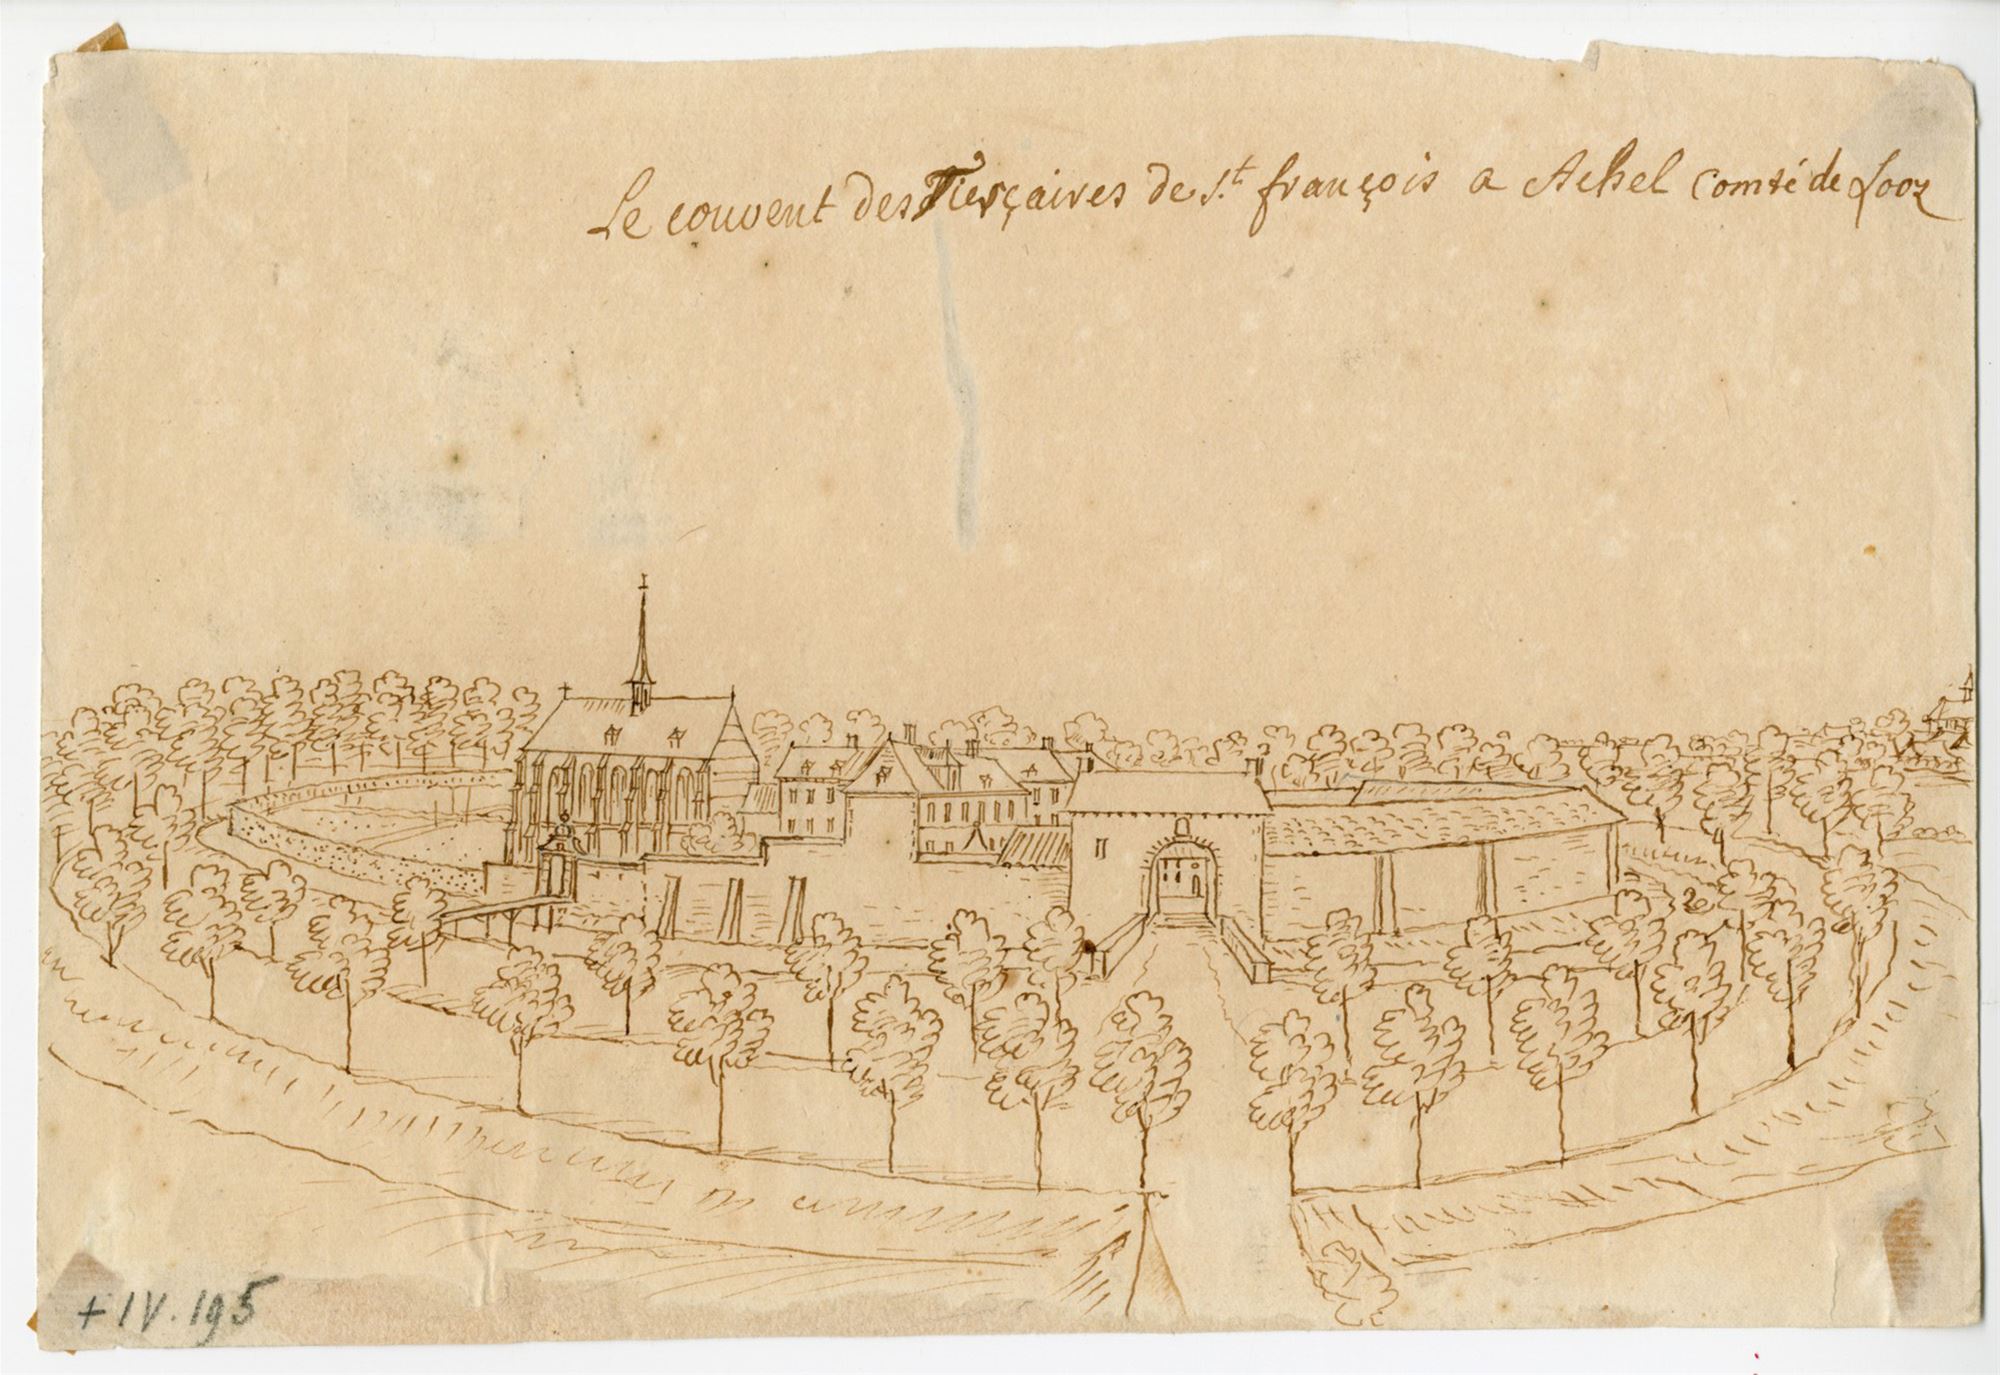 Le couvent des Tierçaires de S.t françois a Achel Comté de Looz
+ IV. 195